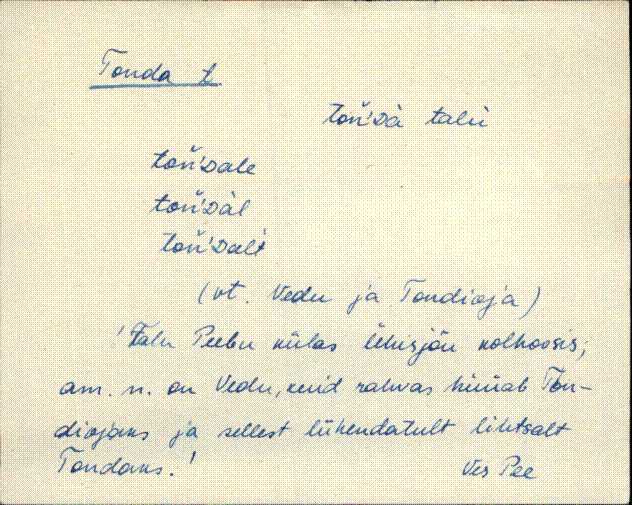 Tonda t.
toń'Dà talù
toń'Dale
toń'Dàl
toń'Dalt
(vt. Vedu ja Tondioja)
'Talu Peebu külas Ühisjõu kolhoosis;
am. n. on Vedu, kuid rahvas hüüab Ton-
diojaks ja sellest lühendatult lihtsalt
Tondaks.'
Ves Pee